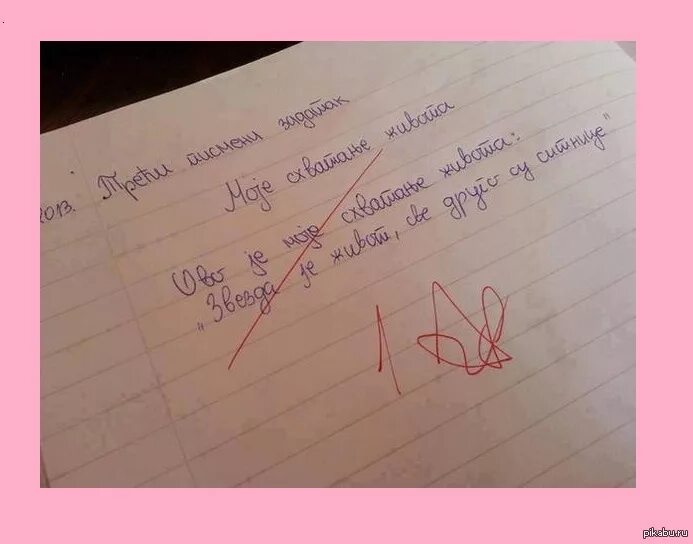 2013.
Трећи писмени задатак
Моје схватање живота
Ово је моје схватање живота:
„Звезда је живот, све друго су ситнице"
1
pikabu.ru